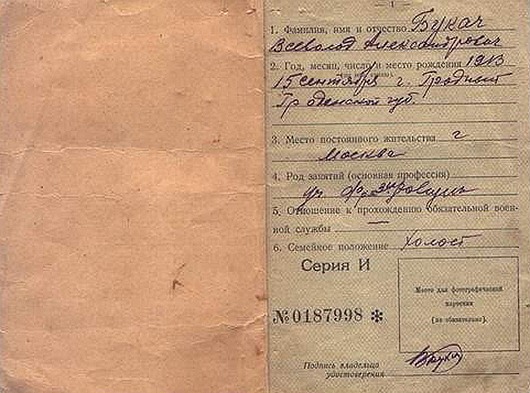 — 1 —
1. Фамилия, имя и отчество Букач
Всеволод Александрович
2. Год, месяц, число и место рождения 1913
15 сентября г. Гродный
Гроденской губ.
3. Место постоянного жительства г
Москва
4. Род занятий (основная профессия)
уч.
5. Отношение к прохождению обязательной воен-
ной службы —
6. Семейное положение Холост
Серия И
№ 0187998 *
Место для фотографической
карточки
(не обязательно).
Подпись владельца
удостоверения